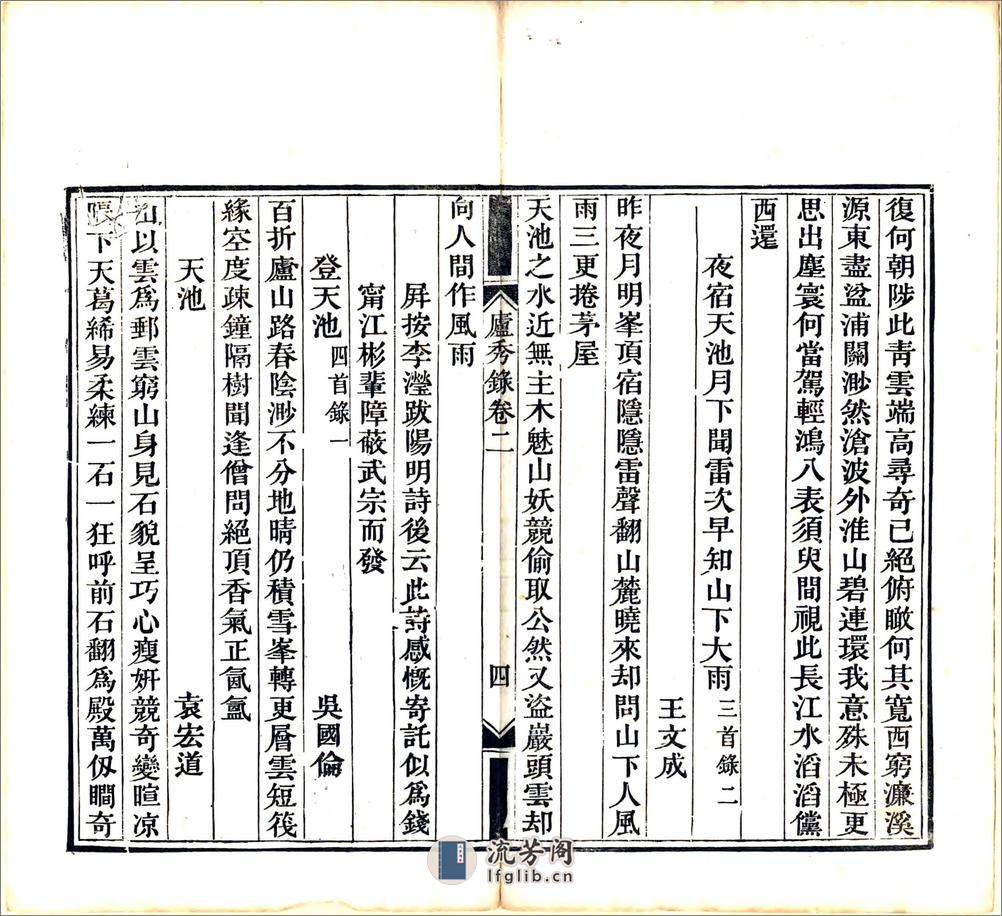 復何朝陟此青雲端高尋奇已絕俯瞰何其寬西窮濂溪
源東盡湓浦關渺然滄波外淮山碧連環我意殊未極更
思出塵寰何當駕輕鴻八表須臾間視此長江水滔滔儻
西還
夜宿天池月下聞雷次早知山下大雨 三首錄二
王文成
昨夜月明峯頂宿隱隱雷聲翻山麓曉來却問山下人風
雨三更捲茅屋
天池之水近無主木魅山妖競偷取公然又盜巖頭雲却
廬秀錄卷二
四
向人間作風雨
屛按李瀅跋陽明詩後云此詩感慨寄託似爲錢
甯江彬輩障蔽武宗而發
登天池 四首錄一 吳國倫
百折廬山路春陰渺不分地晴仍積雪峯轉更層雲短筏
緣空度疎鐘隔樹聞逢僧問絕頂香氣正氤氳
天池 袁宏道
以雲爲郵雲窮山身見石貌呈巧心瘦妍競奇變暄凉
下天葛絺易柔練一石一狂呼前石翻爲殿萬仭瞷奇
流芳阁
lfglib.cn